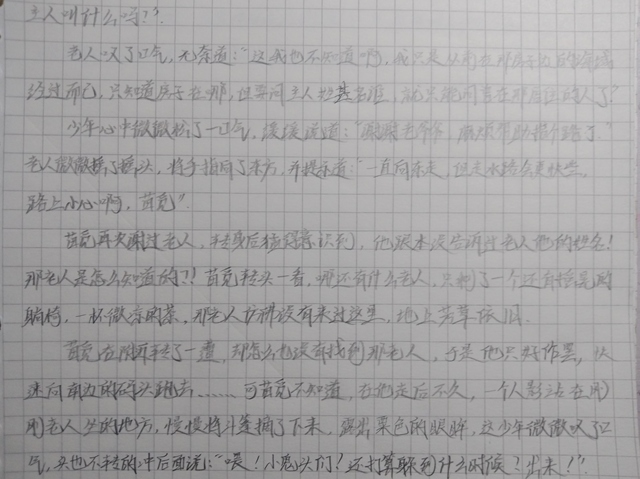 主人叫什么吗?”
老人叹了口气,无奈道:“这我也不知道啊,我只是从前在那房子边
经过而已,只知道房子在哪,但要问主人姓甚名谁,就只能问
少年心中微微松了一口气,缓缓说道:“谢谢老爷爷,麻烦帮助指个路了。”
老人微微摇了摇头,将手指向了东方,并提示道:“一直向东走,但走水路会更快些,
路上小心啊,苗觅”。
苗觅再次谢过老人,转身后猛得意识到,他跟本没告诉过老人他的姓名!
那老人是怎么知道的?!苗觅转头一看,哪还有什么老人,只剩了一个还有摇晃的
躺椅,一杯微凉的茶,那老人仿佛没有来过这里,地上芳草依旧。
苗觅在附近转了一遭,却怎么也没有找到那老人,于是他只好作罢,从
速向南边的码头跑去……可苗觅不知道,在他走后不久,一个人影站在刚
刚老人坐的地方,慢慢将斗笠摘了下来,露出栗色的眼眸,这少年微微叹了口
气,头也不转的冲后面说:“喂!小鬼头们!还打算躲到什么时候?出来!”.